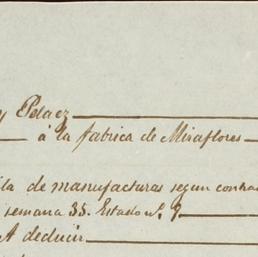 y Pelaez
á la fabrica de Miraflores
de manufacturas segun
semana 35. Estado nº 9
A deducir